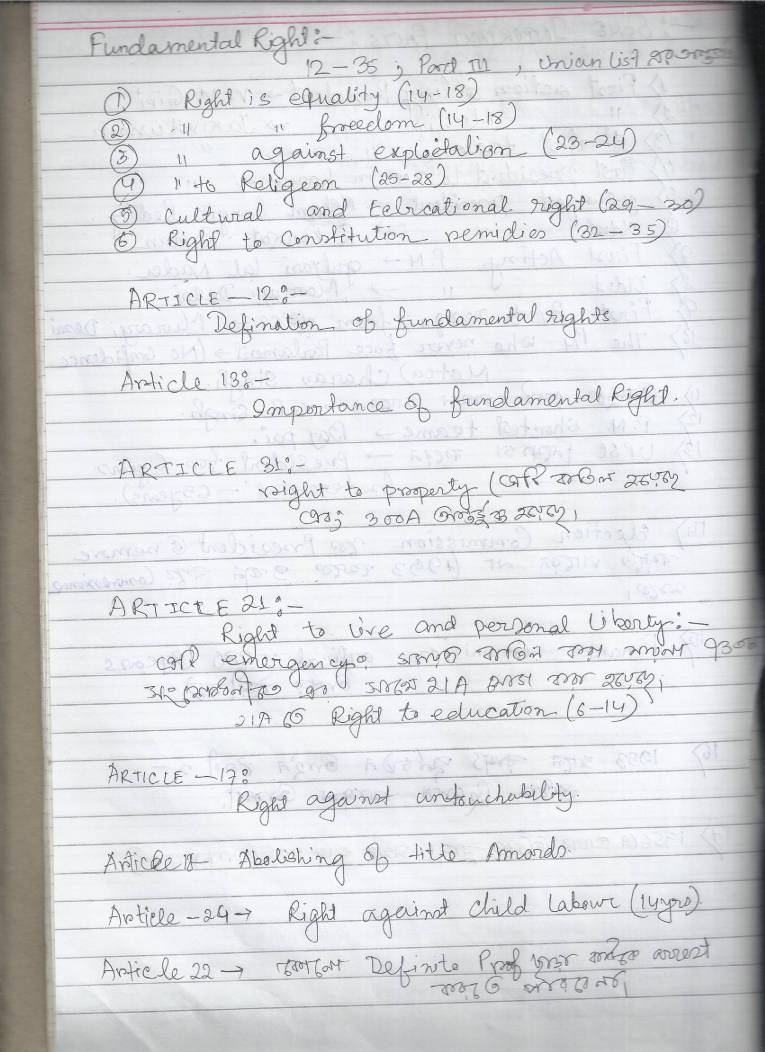 Fundamental Right:-
12-35 ; Part III , Unian List
① Right is equality (14-18)
② " " freedom (14-18)
③ " against exploetaliam (23-24)
④ " to Religeon (25-28)
⑤ Cultural and Edrcational right (29-30)
⑥ Right to Constitution remidies (32-35)
ARTICLE - 12:-
Defination of fundamental rights
Article 13:-
Importance of fundamental Right.
ARTICLE 31:-
right to property (এটি বাতিল হয়েছে
এবং 300A অন্তর্ভুক্ত হয়েছে।
ARTICLE 21:-
Right to live and personal liberty:-
এটি emergency বাতিল করা যায়না
সাথে 21A করা হয়েছে।
21A তে Right to education (6-14)
ARTICLE -17:
Right against untouchability.
Article 18 Abolishing of title Amards.
Article -24→ Right against child Labour (14yrs)
Article 22→ কোনো Definite Proof ছাড়া কাউকে arrest
করতে পারবেনা।